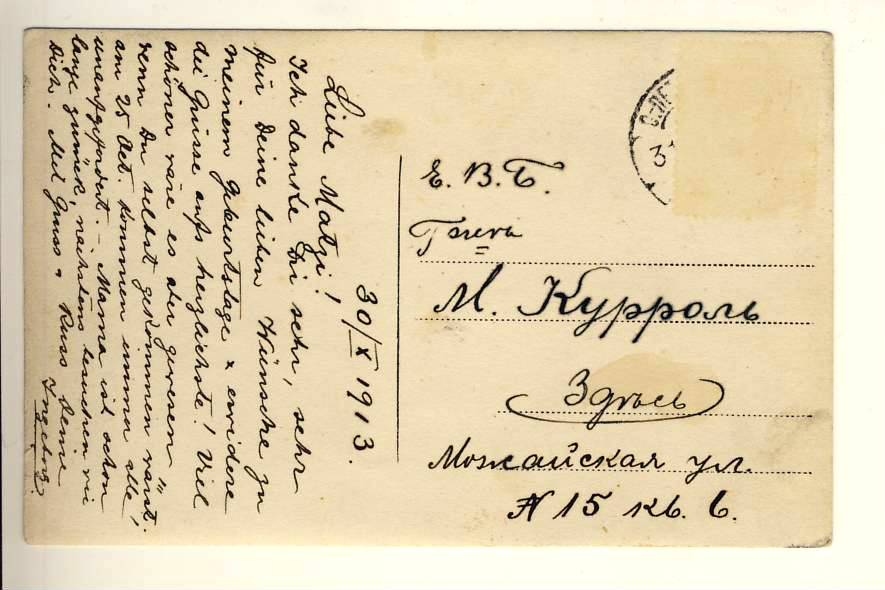 30/X 1913.
Liebe Matzi!
Ich danke Dir sehr, sehr
für Deine lieben Wünsche zu
meinem Geburtstage & erwidere
die Grüsse aufs herzlichste! Viel
schöner wäre es aber gewesen
wenn Du selbst gekommen wärst.
am 25 Oct. kommen immer alle
unaufgefordert. – Mama ist schon
lange zurück, nächstens besuchen wir
Dich. Mit Gruss & Kuss Deine
Ingeborg.
Е. В. Б.
М. Курроль
Здѣсь
Можайская ул.
№ 15 кв. 6.